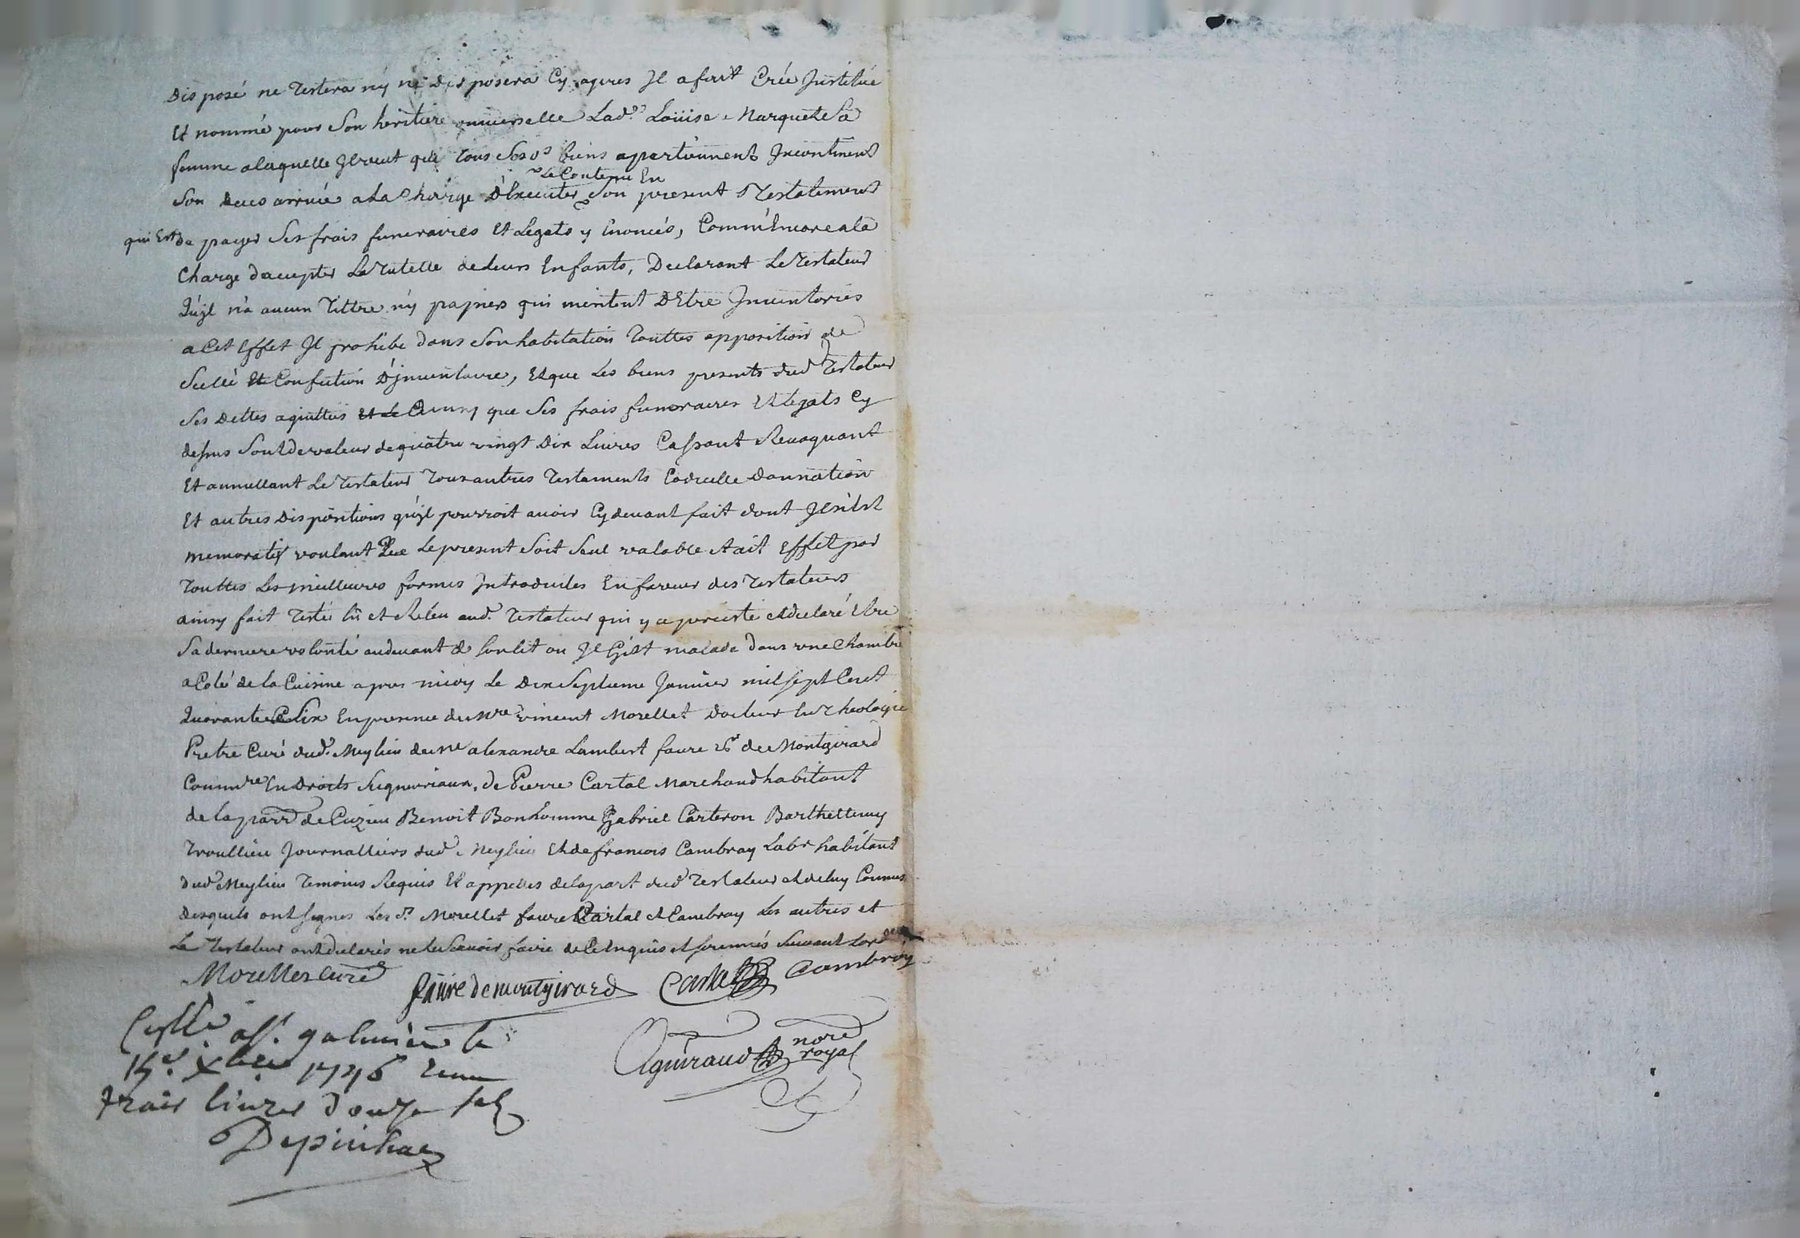 Disposé ne Testera ny ne disposera Cy apres Il a fait Créé Institué
Et nommé pour Son heritiere universelle Lad.e Loüise Marquet Sa
femme a laquelle Il veut que tous Sesds biens apartiennent Incontinent
Le Contenu En
Son deces arrivé a La Charge D'Executer Son present Testatement
qui Est de payer Ses frais funeraires Et Legats y Enoncés, Comm'Encore a la
Charge d'accepter La Tutelle de leurs Enfants, Declarant Le Testateur
Qu'il n'a aucun Tittre ny papiers qui meritent D'Etre Inventoriés
a Cet Effet Il prohibe dans Son habitation Touttes apposition de
Scellé Et Confection D'jnventaire, Et que Les biens presents dud Testateur
Ses Dettes aquittés que Ses frais funeraires Et legats Cy
dessus Sont de valeur de quatre vingt Dix Livres Cassant Revoquant
Et annullant Le Testateur Tous autres Testaments Codicille Donnation
Et autres Dispositions qu'il pourroit avoir Cy devant fait dont Il n'Est
memoratif voulant Que Le present Soit Seul valable Et ait Effet par
Touttes Les meilleures formes Introduites En faveur des Testateurs
ainsy fait Testé lû et Releu aud. Testateur qui y a persisté et declaré Etre
Sa derniere volonté au devant de Son lit ou Il Gist malade dans une Chambre
a Coté de la Cuisine apres midy Le Dix Septieme Janvier mil Sept Cent
Quarante Six En presence de Mre vincent Morellet Docteur En Theologie
Pretre Curé dud. Meylieu de Me alexandre Lambert faure Sr de Montgirard
Commre En Droits Seigneuriaux, de Pierre Cartal Marchand habitant
de la parr de Cuzieu Benoit Bonhomme Gabriel Carteron Barthellemy
Troullieu Journalliers dud Meylieu Et de francois Cambray Labr habitant
dud Meylieu Temoins Requis Et appellés de la part dud Testateur et de luy Connus
Desquels ont Signes Les Sr. Morellet faure Cartal et Cambray Les autres et
Le Testateur ont declarés ne le Scavoir faire de Ce Enquis et Sommés Suivant Lord.ce
Morellet curé faure de montgirard Cartal Cambray
Aguiraud nore royal
Collé a St. galmier le
15e. Xbre 1746 Recu
trois livres douze sols
Depinhac